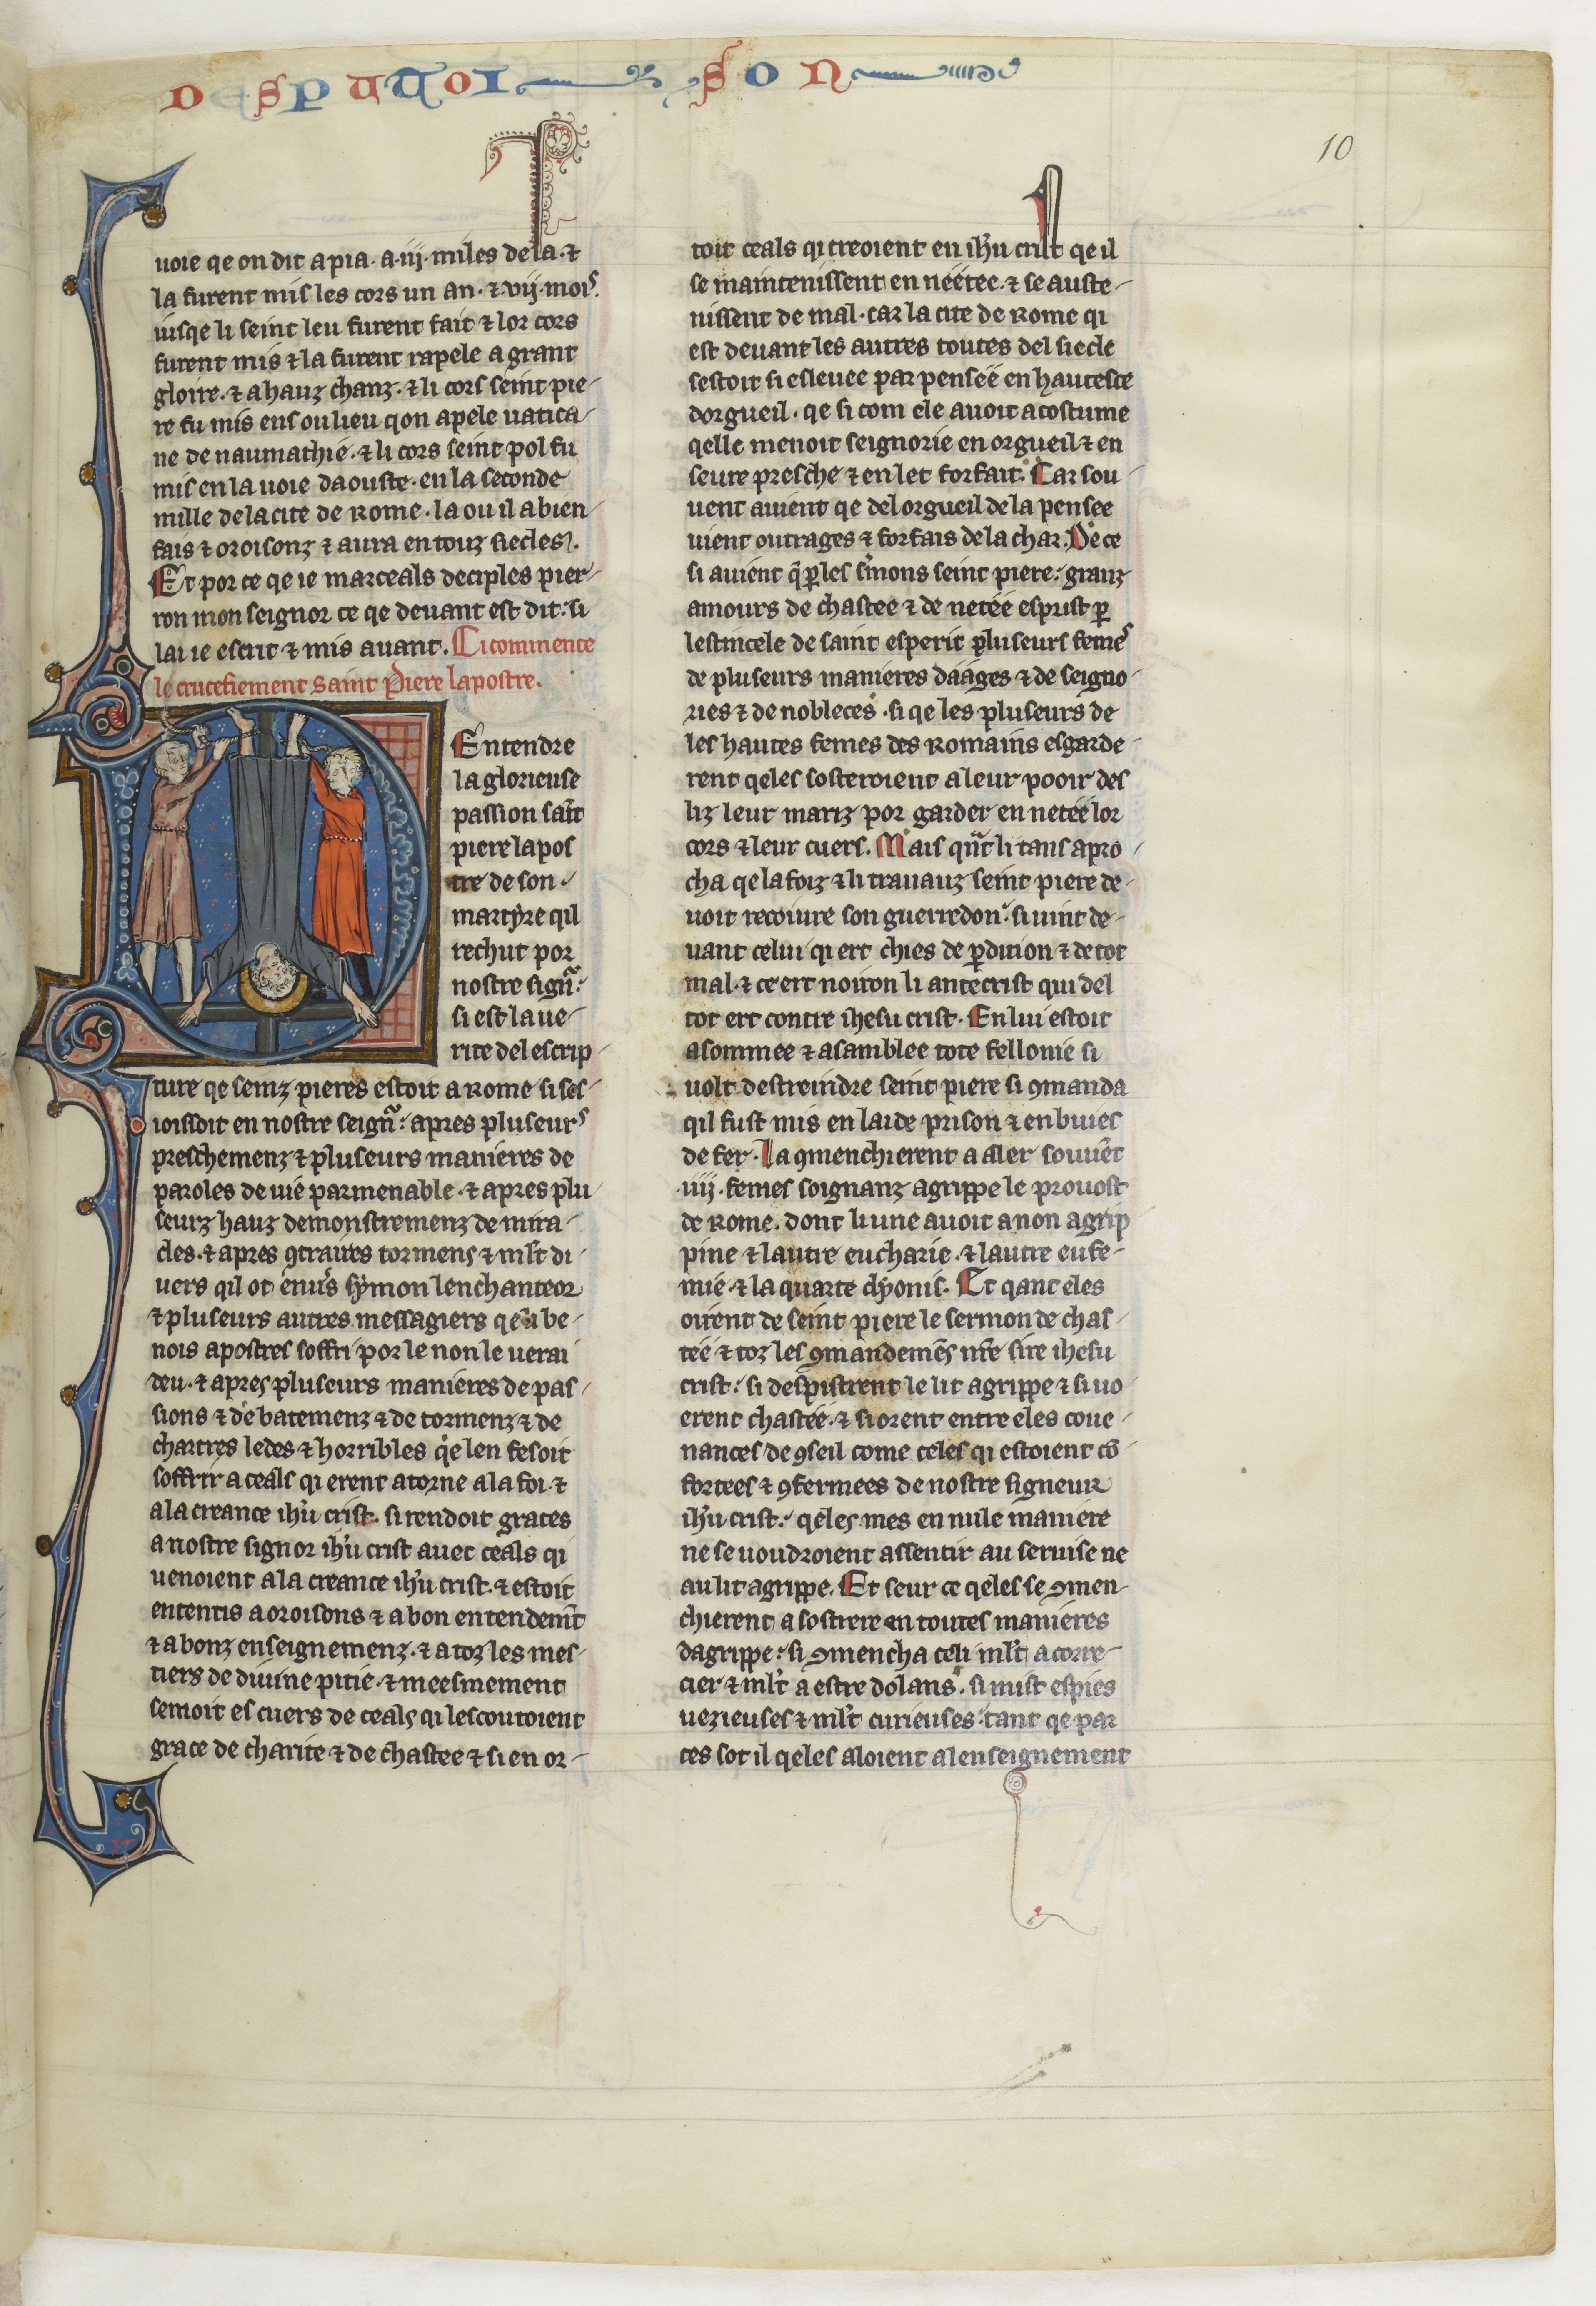 DESPUUOI SON
10
uoie qe on dit apia. a .iij. miles de la. ⁊
la furent mis les cors un an. ⁊ .vij. mois.
iusqe li seint leu furent fait ⁊ lor cors
furent mis ⁊ la furent rapele a grant
gloire. ⁊ a hauz chanz. ⁊ li cors seint pie-
re fu mis ens ou lieu qon apele uatica-
ne de naumathie. ⁊ li cors seint pol fu
mis en la uoie daouste. en la seconde
mille de la cite de rome. la ou il a bien-
fais ⁊ oroisonz ⁊ aura en touz siecles.
Et por ce qe ie marceals deciples pier-
ron mon seignor ce qe deuant est dit: si
lai ie escrit ⁊ mis auant. Ci commence
le crucefiement saint Piere lapostre.
Entendre
la glorieuse
passion saīt
piere lapos
tre de son
martẏre qil
rechut por
nostre sign̄:
si est la ue-
rite del escrip-
ture qe seinz pieres estoit a rome si ses-
ioissoit en nostre seign̄: apres pluseurs
preschemenz ⁊ pluseurs manieres de
paroles de uie parmenable. ⁊ apres plu-
seurz hauz demonstremenz de mira-
cles. ⁊ apres ꝯtraires tormens ⁊ ml̄t di-
uers qil ot enus sẏmon lenchanteor
⁊ pluseurs autres messagiers qe li be-
nois apostres soffri por le non le uerai
deu. ⁊ apres pluseurs manieres de pas-
sions ⁊ de batemenz ⁊ de tormenz ⁊ de
chartres ledes ⁊ horribles qe len fesoit
soffrir a ceals qi erent atorne a la foi. ⁊
a la creance ih'u crist. si rendoit graces
a nostre signor ih'u crist auec ceals qi
uenoient a la creance ih'u crist. ⁊ estoit
ententis a oroisons ⁊ a bon entendem̄t
⁊ a bonz enseignemenz. ⁊ a toz les mes-
tiers de diuine pitie. ⁊ meesmement
semoit es cuers de ceals qi lescoutoient
grace de charite ⁊ de chastee ⁊ si en or-
toit ceals qi creoient en ih'u crist qe il
se maintenissent en neétee. ⁊ se auste-
nissent de mal. car la cite de rome qi
est deuant les autres toutes del siecle
sestoit si esleuee par penseé en hautesce
dorgueil. qe si com ele auoit acostume
qelle menoit seignorie en orgueil ⁊ en
seure presche ⁊ en let forfait. Car sou-
uent auient qe del orgueil de la pensee
uient outrages ⁊ forfais de la char. De ce
si auient q̄ ꝑ les s'mons seint piere: granz
amours de chastee ⁊ de neteé esprist ꝑ
lestincele de saint esperit ꝑluseurs femes
de pluseurs manieres dááges ⁊ de seigno-
ries ⁊ de nobleces. si qe les pluseurs de
les hautes femes des romains esgarde-
rent qeles sosteroient a leur pooir des
liz leur mariz por garder en neteé lor
cors ⁊ leur cuers. Mais qn̄t li tans apro-
cha qe la foiz ⁊ li trauauz seint piere de-
uoit recoiure son guerredon: si uint de-
uant celui qi ert chies de ꝑdition ⁊ de tot
mal. ⁊ ce ert noiron li antecrist qui del
tot ert contre ihesu crist. En lui estoit
asommee ⁊ asamblee tote fellonie si
uolt destreindre seint piere si ꝯmanda
qil fust mis en laide prison ⁊ en buies
de fer. La ꝯmenchierent a aler souuēt
.iiij. femes soignanz agrippe le prouost
de rome. dont li une auoit a non agrip-
pine ⁊ lautre eucharie. ⁊ lautre eufe-
mie. ⁊ la quarte dẏonis. Et qant eles
oirent de seint piere le sermon de chas-
teé ⁊ toz les ꝯmandemēs nr̄e sire ihesu
crist: si despistrent le lit agrippe ⁊ si uo-
erent chasteé. ⁊ si orent entre eles coue-
nances de ꝯseil come celes qi estoient cō-
fortees ⁊ ꝯfermees de nostre signeur
ih'u crist: qeles mes en nule maniere
ne se uoudroient assentir au seruise ne
au lit agrippe. Et seur ce qeles se ꝯmen-
chierent a sostrere en toutes manieres
dagrippe: si ꝯmencha cesli ml̄t a corre-
cier ⁊ ml̄t a estre dolans. si mist espies
uezieuses ⁊ ml̄t curieuses: tant qe par
ces sot il qeles aloient al enseignement